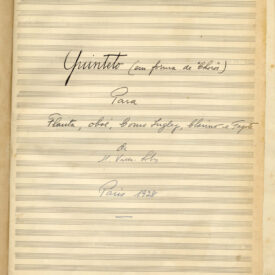 Quinteto (em forma de Chôros)
Para
Flauta, oboé, Corno Inglez, Clarino e Fagote
de
H. Villa-Lobos
Paris 1928